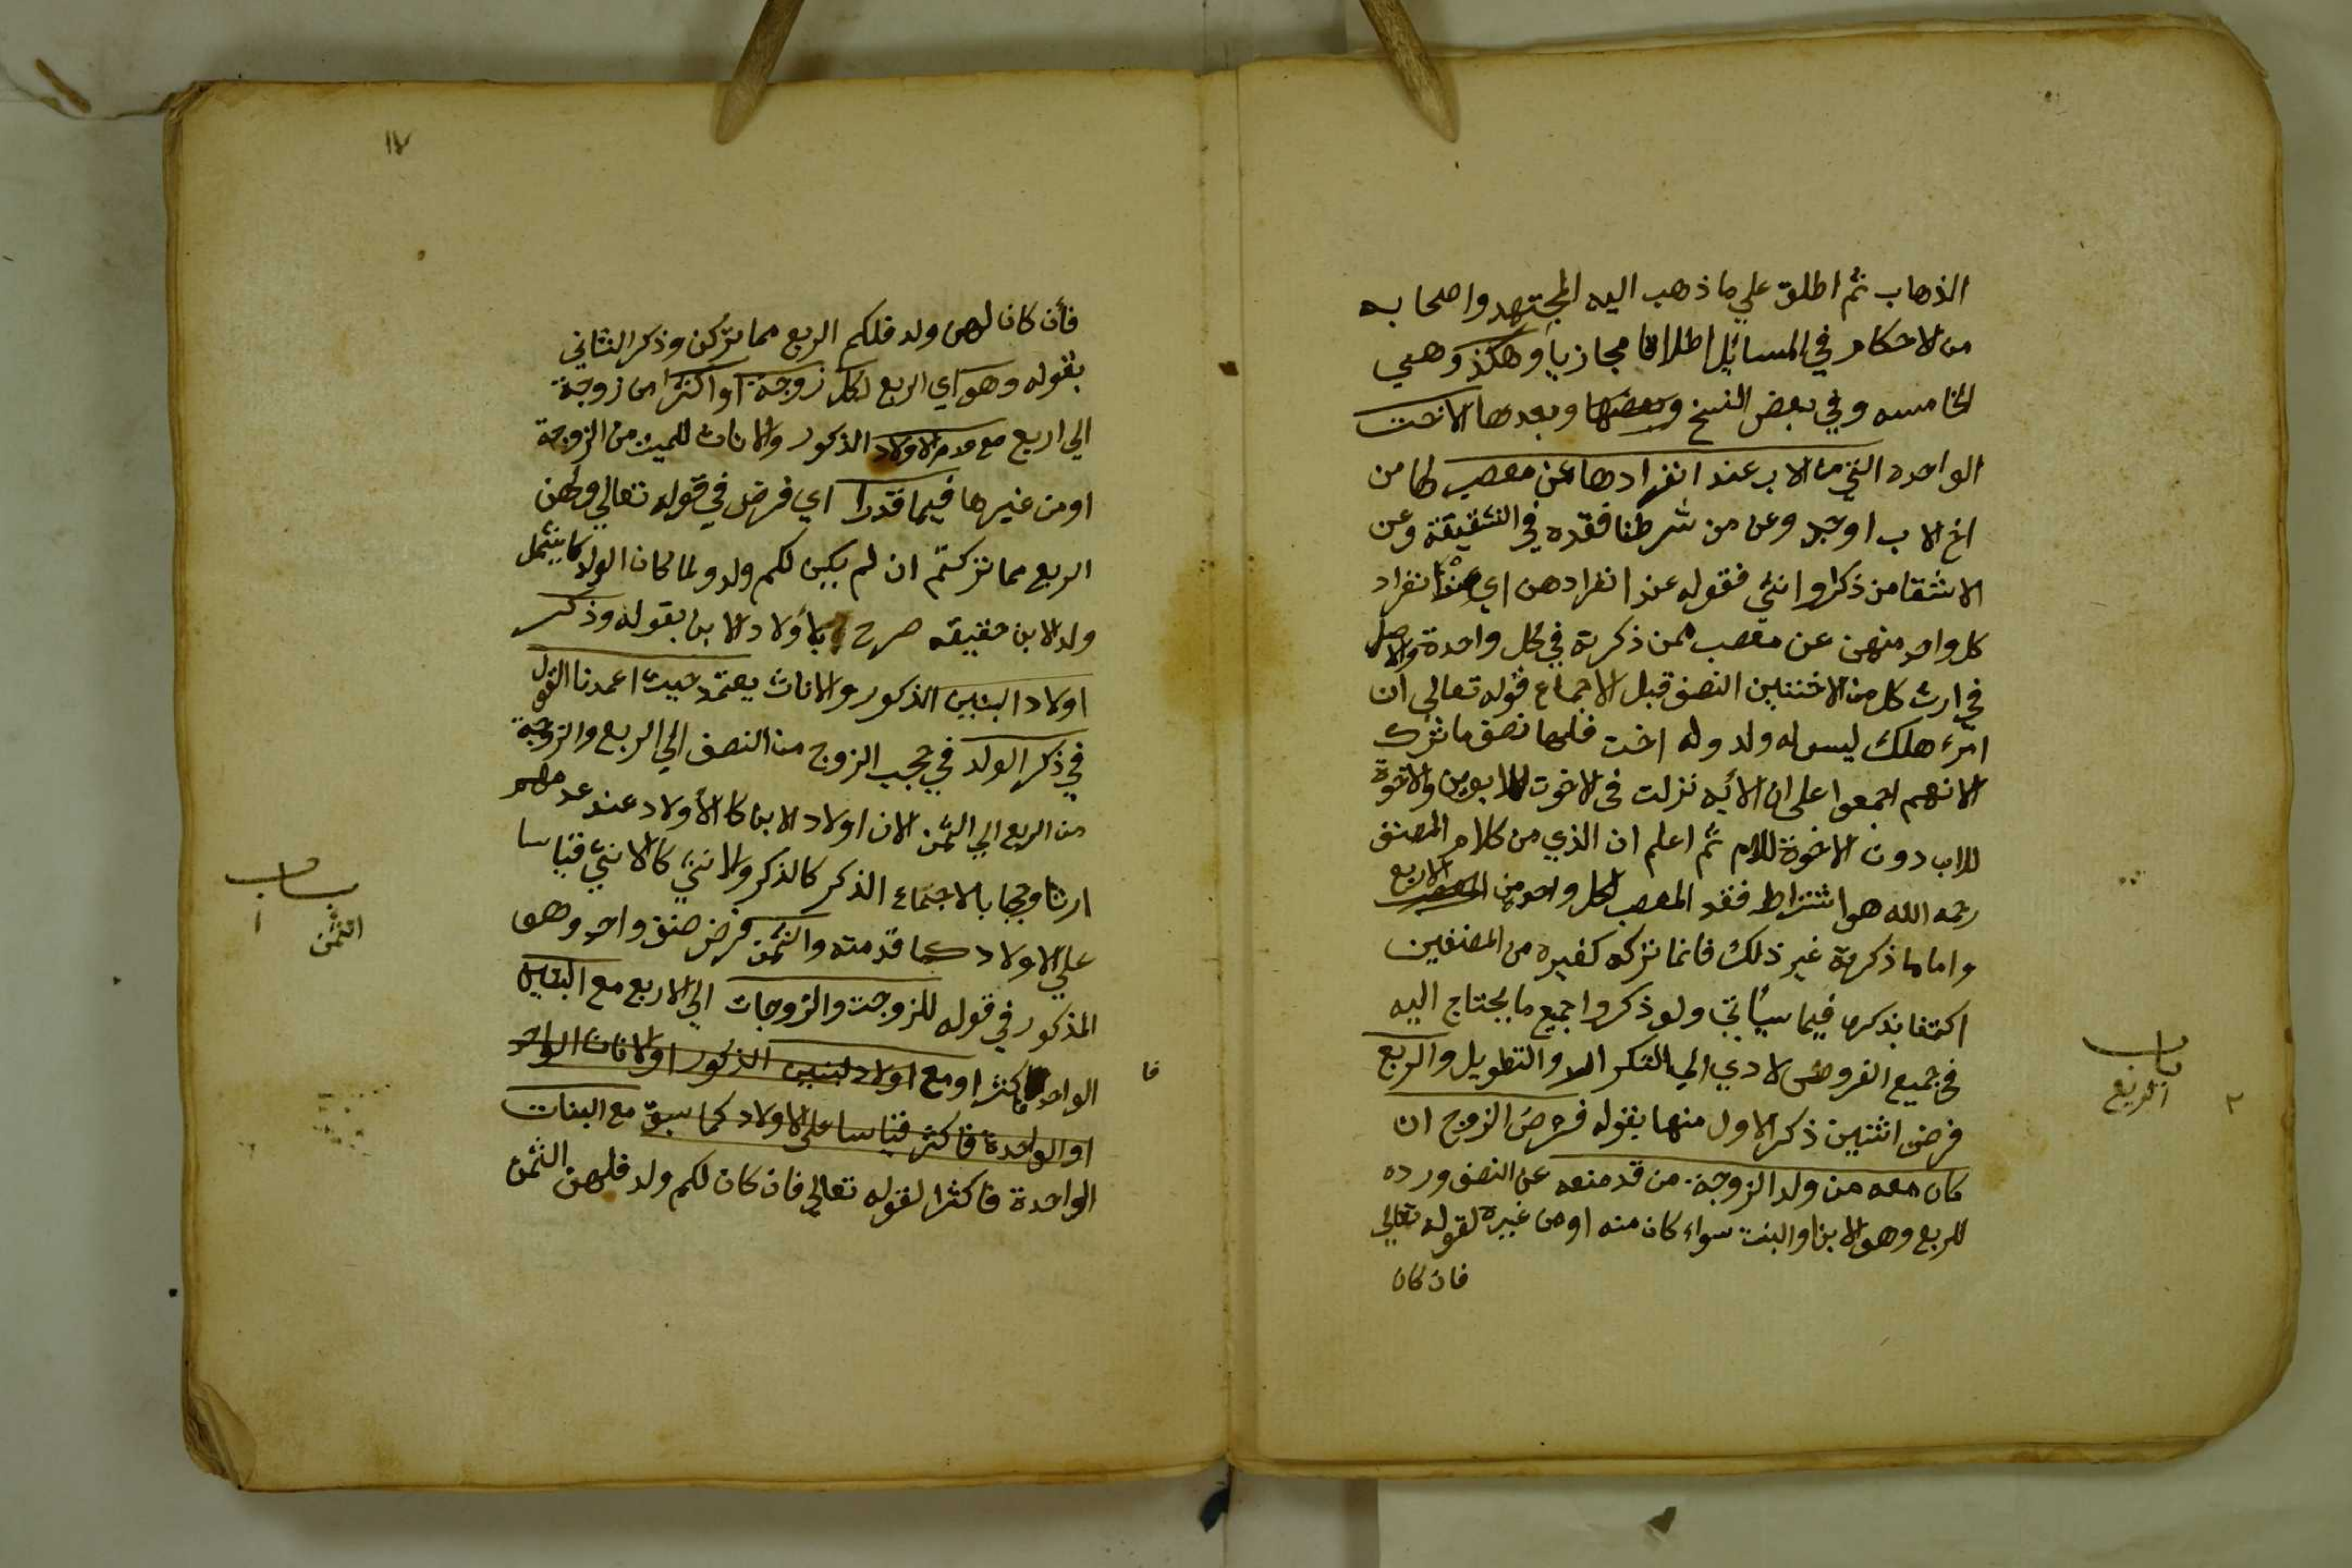 الذهاب ثم اطلق علي ما ذهب اليه المجتهد واصحابه
من الاحكام في المسائل اطلاقا مجازيا وهكذ وهي
الخامسه وفي بعض النسخ وبعضها وبعدها الاخت
الواحده التي من الاب عند انفرادها عن معصب لها من
اخ الاب او جد وعن من شرطنا فقده في الشقيقة وعن
الاشقا من ذكر او انثي فقوله عند انفرادهن اي عند انفراد
كل واحد منهن عن معصب ممن ذكرته في كل واحدة والاصل
في ارث كل من الاختين النصف قبل الاجماع قوله تعالي ان
امرء هلك ليس له ولد وله اخت فلها نصف ما ترك
لانهم اجمعوا علي ان الايه نزلت في الاخوت للابوين والاخوة
للاب دون الاخوة للام ثم اعلم ان الذي من كلام المصنف
رحمه الله هو اشتراط فقد المعصب لكل واحد من الاربع
واما ما ذكرته غير ذلك فانما تركه كغيره من المصنفين
اكتفا بذكره فيما سيأتي ولو ذكروا جميع ما يحتاج اليه
في جميع الفروض لادي الي التكرار والتطويل والربع
فرض اثنين ذكر الاول منها بقوله فرض الزوج ان
كان معه من ولد الزوجة من قد منعه عن النصف ورده
للربع وهو الابن والبنت سواء كان منه او من غيره لقوله تعالي
فان كان
باب
الربع
٢
١٧
فأن كان لهن ولد فلكم الربع مما تركن وذكر الثاني
بقوله وهو اي الربع لكل زوجة او اكثرا من زوجة
الي اربع مع عدم الاولاد الذكور والاناث للميت من الزوجة
او من غيرها فيما قدرا اي فرض في قوله تعالي ولهن
الربع مما تركتم ان لم يكن لكم ولد ولما كان الولد لا يشمل
ولد الابن حقيقه صرح بأولاد الابن بقوله وذكر
اولاد البنين الذكور والاناث يعتمد حيث اعمدنا القول
في ذكر الولد في حجب الزوج من النصف الي الربع والزوجة
من الربع الي الثمن لان اولاد الابن كالأولاد عند عدمهم
ارثا وحجبا بالاجماع الذكر كالذكر والانثي كالانثي قياسا
علي الاولاد كما قدمته والثمن فرض صنف واحد وهو
المذكور في قوله للزوجت والزوجات الي الاربع مع البنين
الواحد فاكثر او مع اولاد البنين الذكور او الاناث الواحد
او الواحدة فاكثر قياسا علي الاولاد كما سبق مع البنات
الواحدة فاكثرا لقوله تعالي فان كان لكم ولد فلهن الثمن
باب
الثمن
١
فا